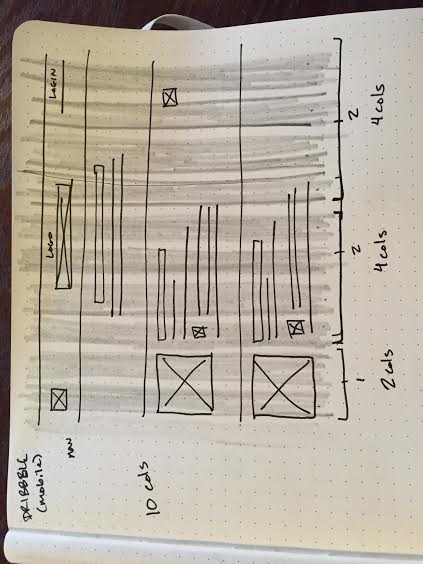 DRIBBBLE
(mobile)
LOGO
LOGIN
NAV
10 cols
1 2 2
2 cols 4 cols 4 cols